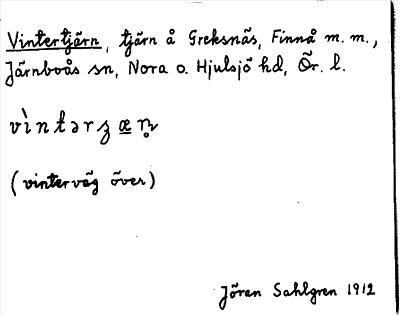 Vintertjärn, tjärn å Greksnäs, Finnå m.m.,
Järnboås sn, Nora o. Hjulsjö hd, Ör. l.
(vinterväg över)
Jöran Sahlgren 1912